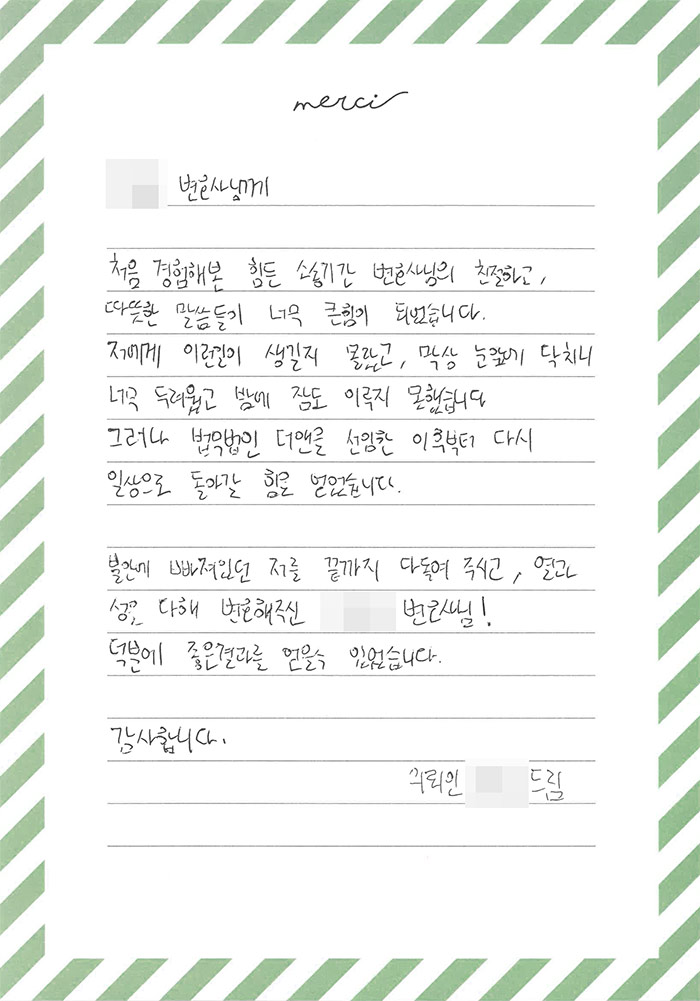 merci
변호사님께
처음 경험해본 힘든 소송기간 변호사님의 친절하고,
따뜻한 말씀들이 너무 큰힘이 되었습니다.
저에게 이런일이 생길지 몰랐고, 막상 눈앞에 닥치니
너무 두려웠고 밤에 잠도 이루지 못했습니다
그러나 법무법인 더앤을 선임한 이후부터 다시
일상으로 돌아갈 힘을 얻었습니다.
불안에 빠져있던 저를 끝까지 다독여 주시고, 열과
성을 다해 변호해주신 변호사님!
덕분에 좋은결과를 얻을수 있었습니다.
감사합니다.
의뢰인 드림